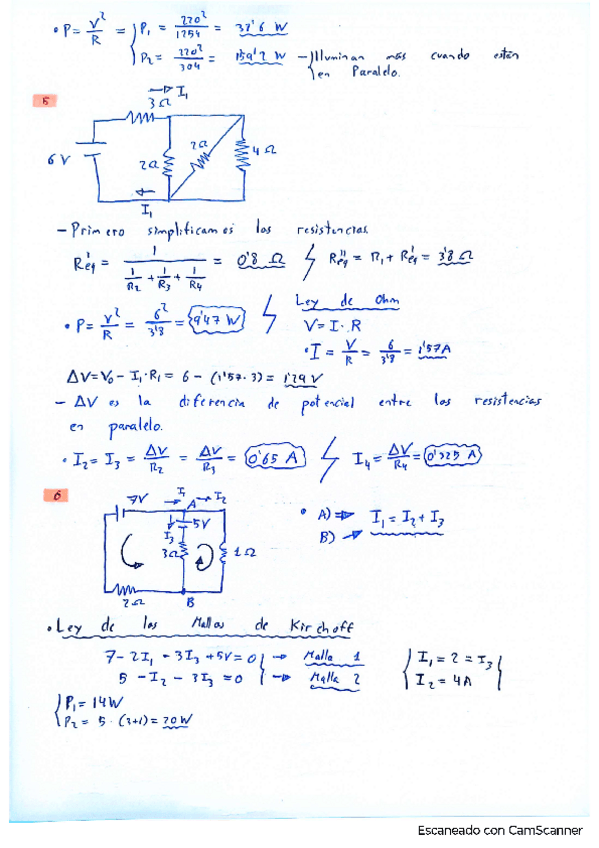 • P = V²/R = { P₁ = 220²/1254 = 37'6 W
P₂ = 220²/304 = 159'2 W – Iluminan más cuando están
en Paralelo.
5
I₁
3Ω
6V
2Ω
2Ω
4Ω
I₁
– Primero simplificamos las resistencias
R'eq = 1 / (1/R₂ + 1/R₃ + 1/R₄) = 0'8 Ω
R''eq = R₁ + R'eq = 3'8 Ω
• P = V²/R = 6²/3'8 = 9'47 W
Ley de Ohm
V = I · R
• I = V/R = 6/3'8 = 1'57A
ΔV = V₀ – I₁·R₁ = 6 – (1'57·3) = 1'29 V
– ΔV es la diferencia de potencial entre las resistencias
en paralelo.
• I₂ = I₃ = ΔV/R₂ = ΔV/R₃ = 0'65 A
I₄ = ΔV/R₄ = 0'325 A
6
7V
I₁ A I₂
5V
I₃
3Ω
1Ω
2Ω
B
• A) ⇒ I₁ = I₂ + I₃
B) →
• Ley de las Mallas de Kirchoff
7 – 2I₁ – 3I₃ + 5V = 0 → Malla 1
5 – I₂ – 3I₃ = 0 → Malla 2
{ I₁ = 2 = I₃
I₂ = 4A }
{ P₁ = 14W
P₂ = 5 · (3+1) = 20W
Escaneado con CamScanner